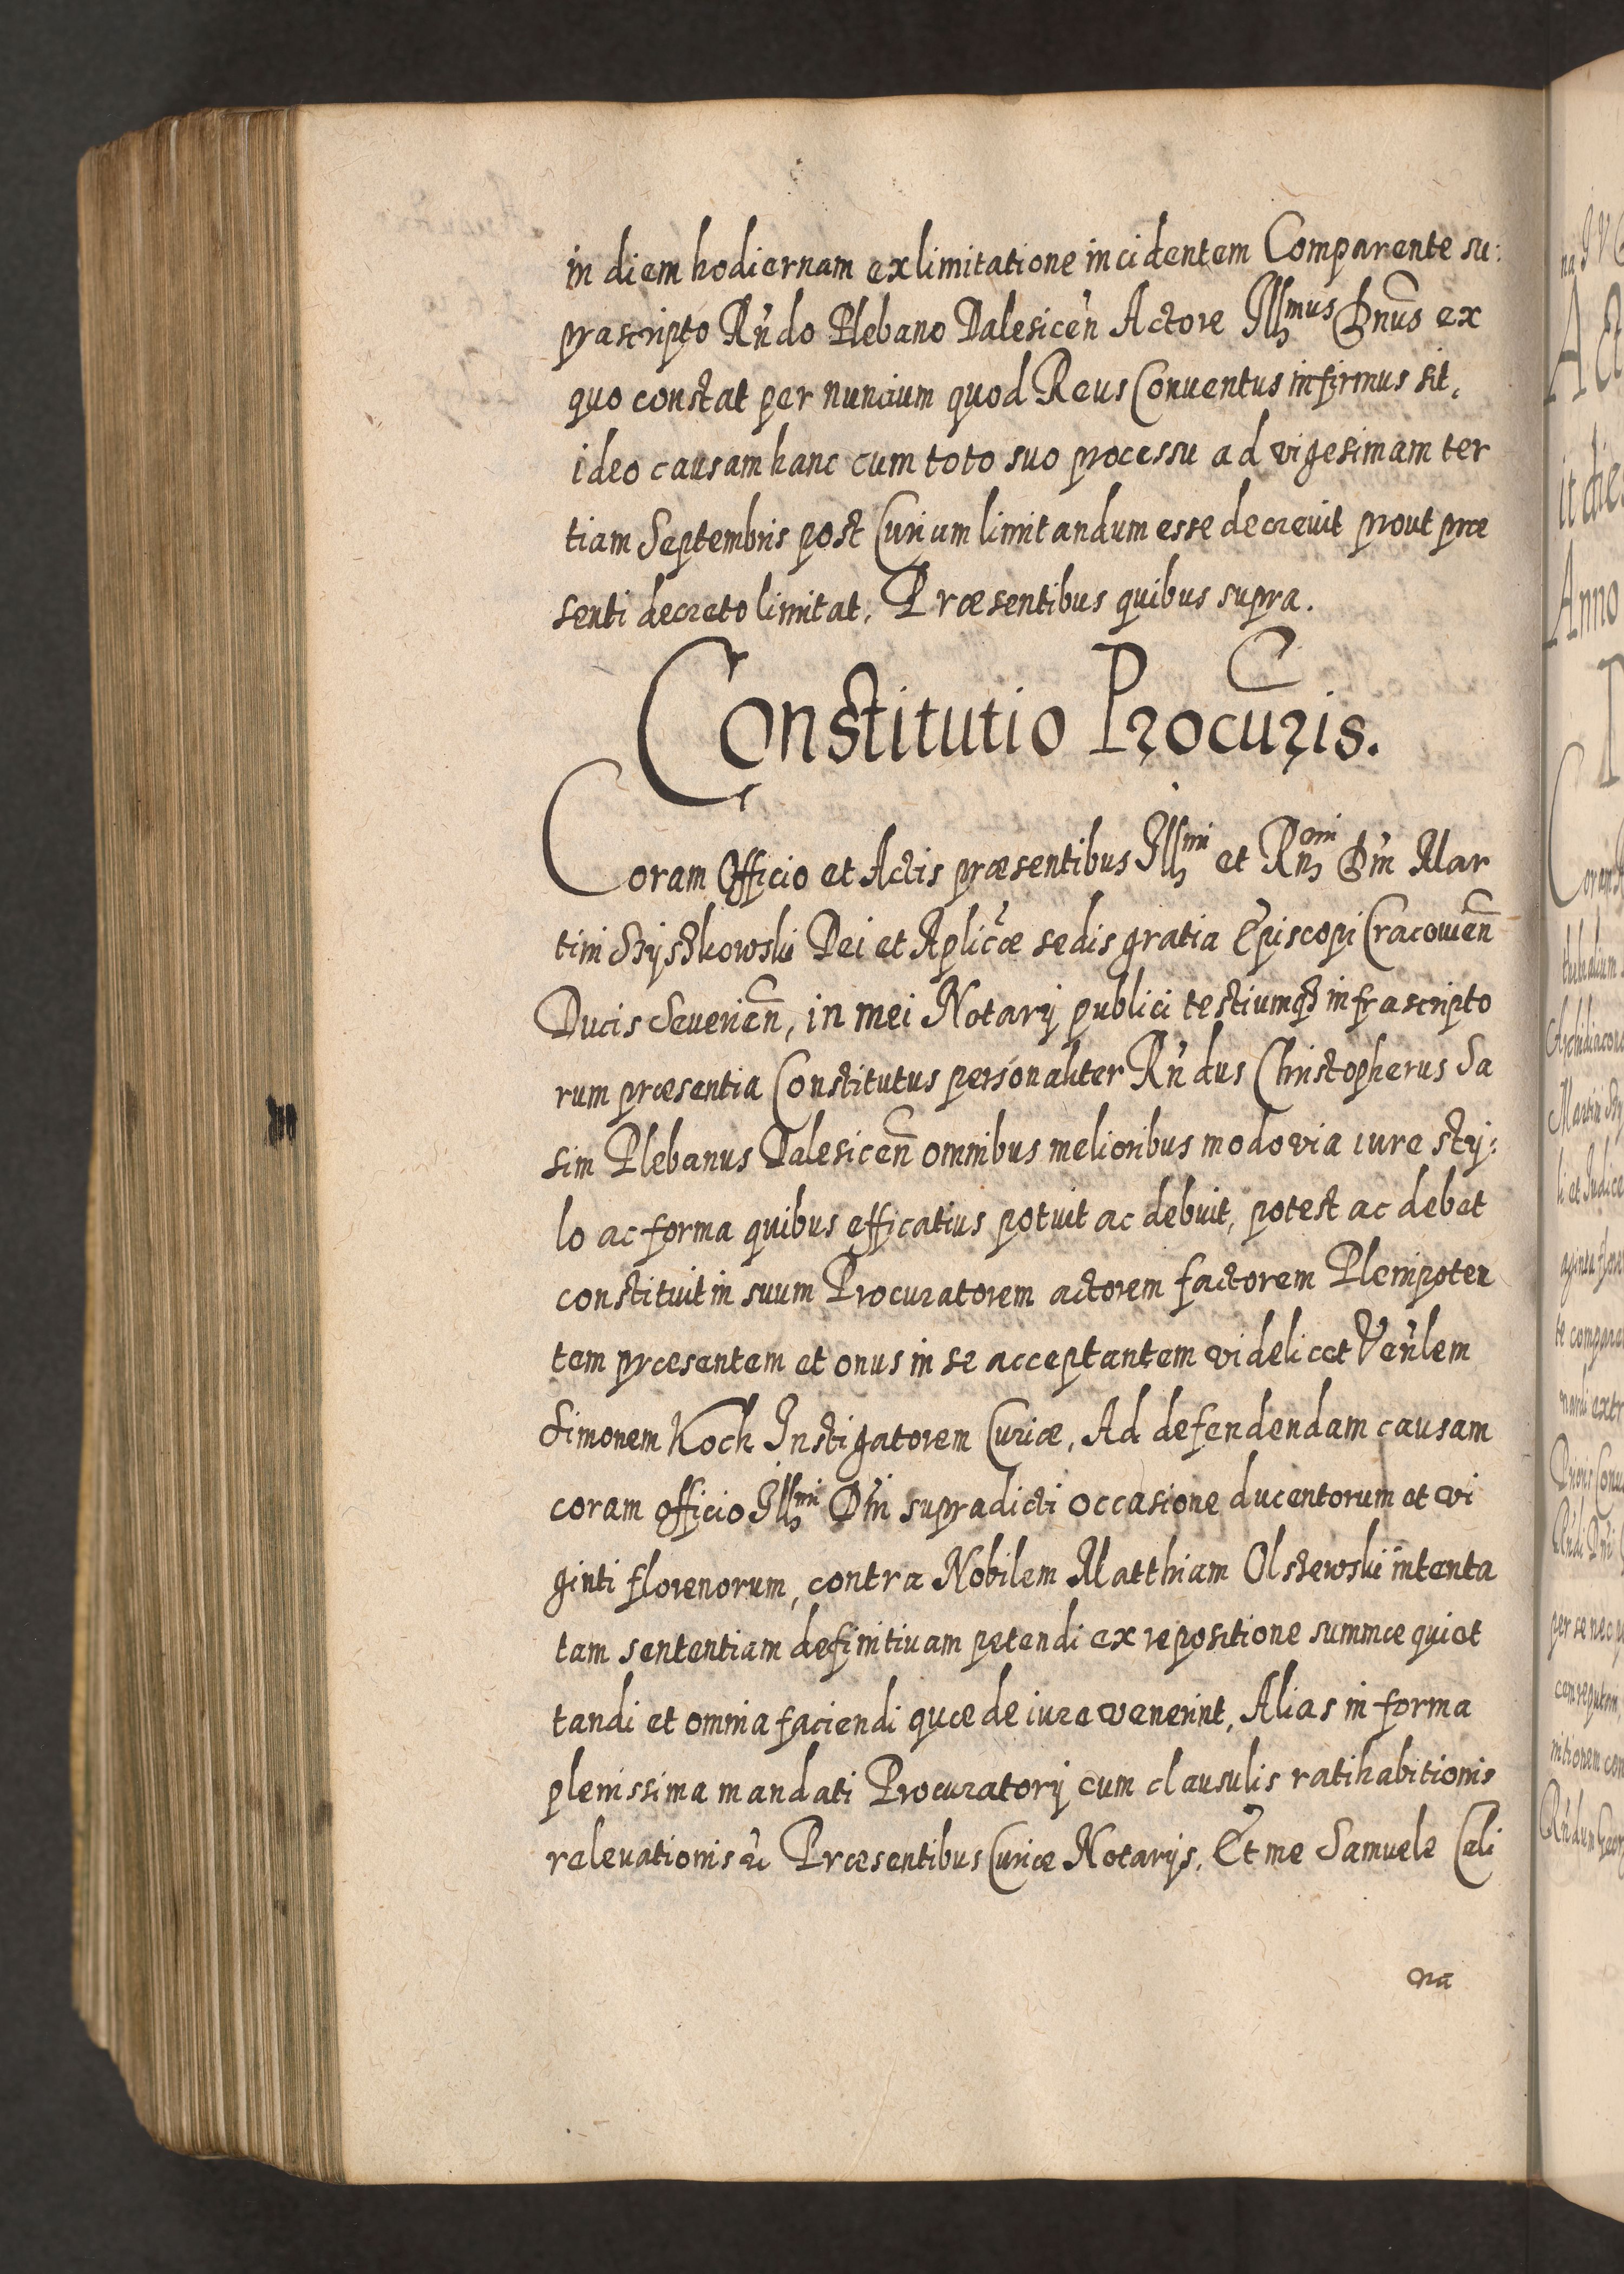 in diem hodiernam ex limitatione incidentem Comparente su:
prascripto Rńdo Plebano Dalesiceń Actore Illmus Dnus ex
quo constat per nuncium quod Reus Conuentus infirmus sit,
ideo causam hanc cum toto suo processu ad vigesimam ter
tiam Septembris post Curium limitandum esse decreuit prout præ
senti decreto limitat, Præsentibus quibus supra.
Constitutio Procuris.
Coram Officio et Actis præsentibus Illmi et Rndmi Dńi Mar
tini Szyszkowski Dei et Aplicæ sedis gratia Episcopi Cracouien
Ducis Seuerien, in mei Notarij publici testiumq3 infrascripto
rum præsentia Constitutus personaliter Rńdus Christopherus Sa
sim Plebanus Dalesicen omnibus melioribus modo via iure sty:
lo ac forma quibus efficatius potuit ac debuit, potest ac debet
constituit in suum Procuratorem actorem factorem Plenipoten
tem præsentem et onus in se acceptantem videlicet Veńlem
Simonem Koch Instigatorem Curiæ, Ad defendendam causam
coram officio Illmi Dńi supradicti occasione ducentorum et vi
ginti florenorum, contra Nobilem Matthiam Olszewski intenta
tam sententiam definitiuam petendi ex repositione summæ quiet
tandi et omnia faciendi quæ de iure venerint, Alias in forma
plenissima mandati Procuratorij cum clausulis ratihabitionis
releuationis &c Præsentibus Curiæ Notarijs, Et me Samuele Cali
na